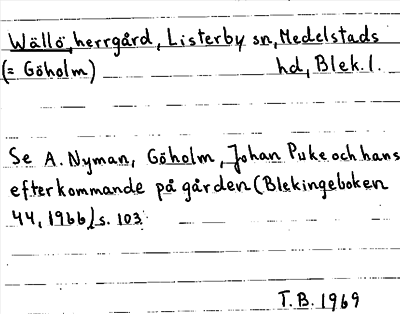 Wällö, herrgård, Listerby sn, Medelstads
(= Göholm) hd, Blek. l.
Se A. Nyman, Göholm, Johan Puke och hans
efterkommande på gården (Blekingeboken
44, 1966) s. 103
T. B. 1969